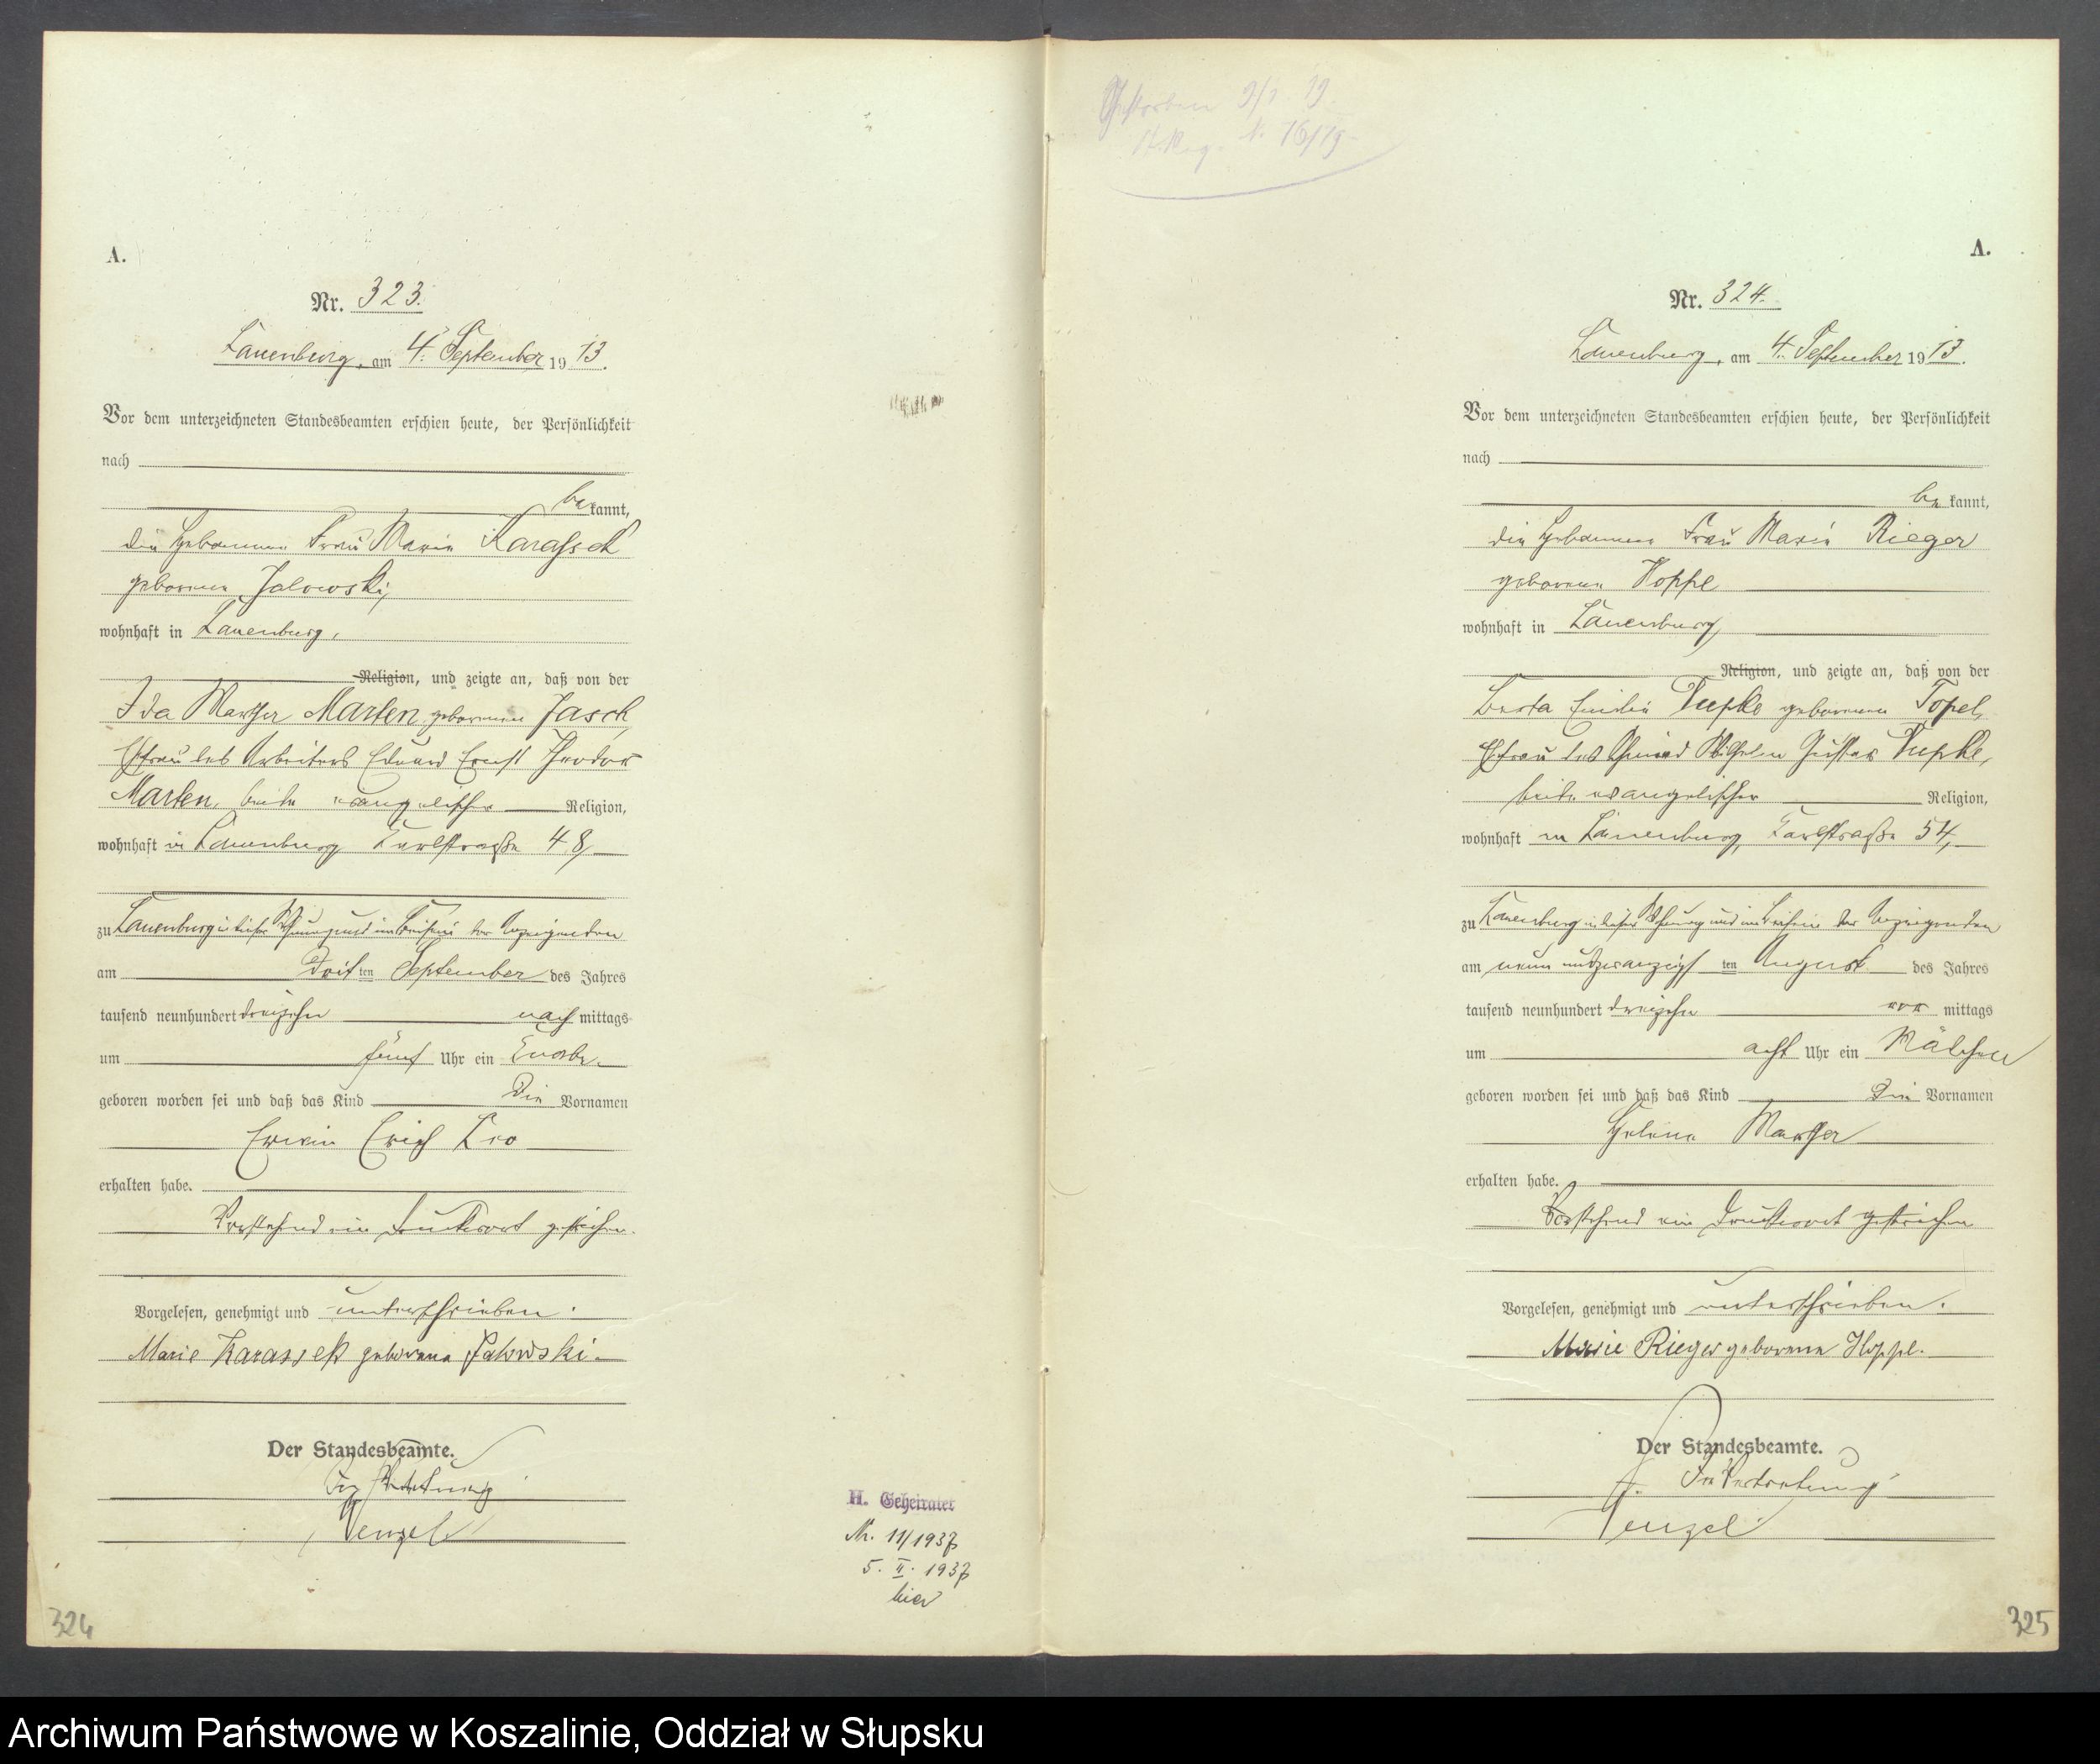 A.
Nr. 323.
Lauenburg, am 4. September 1913.
Vor dem unterzeichneten Standesbeamten erschien heute, der Persönlichkeit
nach
bekannt,
die Hebamme Frau Marie Karasseck
geborene Jalowski,
wohnhaft in Lauenburg,
Religion, und zeigte an, daß von der
Ida Martha Marten geborenen Jasch,
Ehefrau des Arbeiters Eduard Ernst Theodor
Marten, beide evangelischer Religion,
wohnhaft in Lauenburg Karlstraße 48,
zu Lauenburg in dieser Wohnung und im Beisein der Anzeigenden
am dritten September des Jahres
tausend neunhundert dreizehn nachmittags
um fünf Uhr ein Knabe
geboren worden sei und daß das Kind die Vornamen
Erwin Erich Leo
erhalten habe.
Vorstehend ein Druckwort gestrichen.
Vorgelesen, genehmigt und unterschrieben.
Marie Karasseck geborene Jalowski.
Der Standesbeamte.
In Vertretung
Wenzel
H. Geheiratet
Nr. 11/1937
5. II. 1937
hier
324
Gestorben 9/1. 19.
St. Reg. Nr. 76/19
A.
Nr. 324.
Lauenburg, am 4. September 1913.
Vor dem unterzeichneten Standesbeamten erschien heute, der Persönlichkeit
nach
bekannt,
die Hebamme Frau Marie Rieger
geborene Hoppe
wohnhaft in Lauenburg
Religion, und zeigte an, daß von der
Emilie geborenen Topel,
Ehefrau des Schmied Wilhelm Gustav
beide evangelischer Religion,
wohnhaft in Lauenburg, Karlstraße 54,
zu Lauenburg in dieser Wohnung und im Beisein der Anzeigenden
am neunundzwanzigsten August des Jahres
tausend neunhundert dreizehn vormittags
um acht Uhr ein Mädchen
geboren worden sei und daß das Kind die Vornamen
Helene Martha
erhalten habe.
Vorstehend ein Druckwort gestrichen
Vorgelesen, genehmigt und unterschrieben.
Marie Rieger geborene Hoppe.
Der Standesbeamte.
In Vertretung
Wenzel
325
Archiwum Państwowe w Koszalinie, Oddział w Słupsku